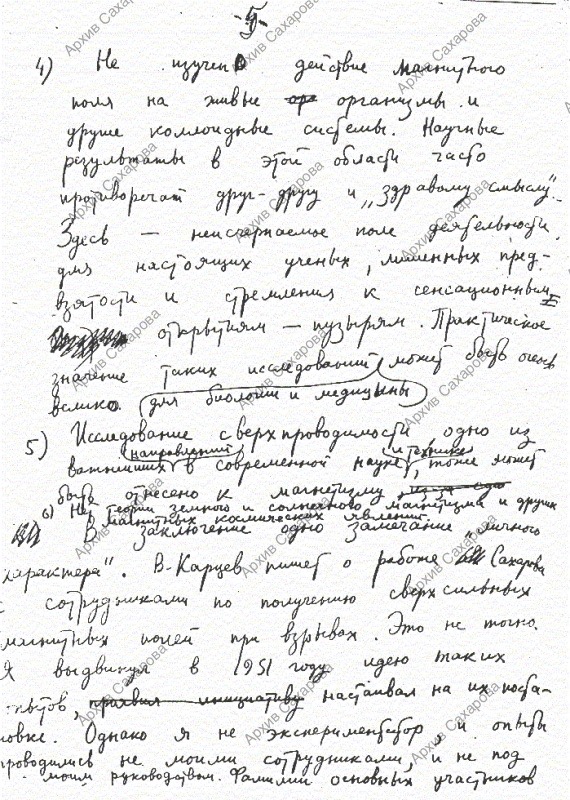 -5-
4) Не изучено действие магнитного
поля на живые ор организмы и
другие коллоидные системы. Научные
результаты в этой области часто
противоречат друг-другу и „здравому смыслу".
Здесь — неисчерпаемое поле деятельности
для настоящих ученых, лишенных пред-
взятости и стремления к сенсационным
открытиям — пузырям. Практическое
значение таких исследований может быть очень
велико. для биологии и медицины
5) Исследование сверхпроводимости одно из
направлений и технике
важнейших в современной науке, тоже может
быть отнесено к магнетизму
6) Нет теории земного и солнечного магнетизма и других
магнитных космических явлений
В заключение одно замечание „личного
характера". В. Карцев пишет о работе Сахарова
с сотрудниками по получению сверхсильных
магнитных полей при взрывах. Это не точно.
Я выдвинул в 1951 году идею таких
опытов, проявил инициативу настаивал на их поста-
новке. Однако я не экспериментатор, и опыты
проводились не моими сотрудниками, и не под
моим руководством. Фамилии основных участников
Архив Сахарова